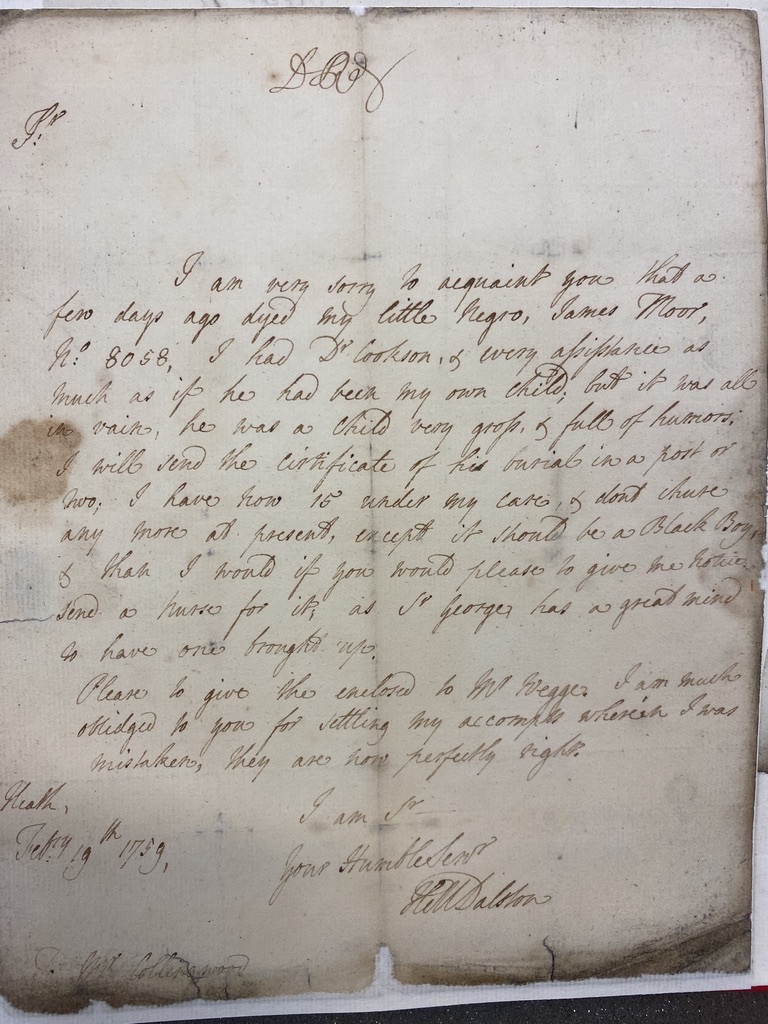 Sr:
I am very sorry to acquaint you that a
few days ago dyed my little Negro, James Moor,
No. 8058, I had Dr Cookson, & every assisstance as
much as if he had been my own child, but it was all
in vain, he was a child very gross, & full of humors;
I will send the certificate of his burial in a post or
two; I have now 15 under my care, & dont chuse
any more at present, except it should be a Black Boy,
& than I would if you would please to give me notice
send a nurse for it, as Sr George has a great mind
to have one brought up.
Please to give the enclosed to Mr Wegge. I am much
oblidged to you for settling my accompts wherein I was
mistaken, they are now perfectly right.
I am Sr
Heath,
Febry 19th 1759,
Your Humble Servt
Dalston
To Mr Collingwood